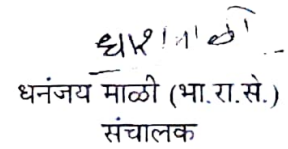 धनंजय माळी (भा.रा.से.)
संचालक